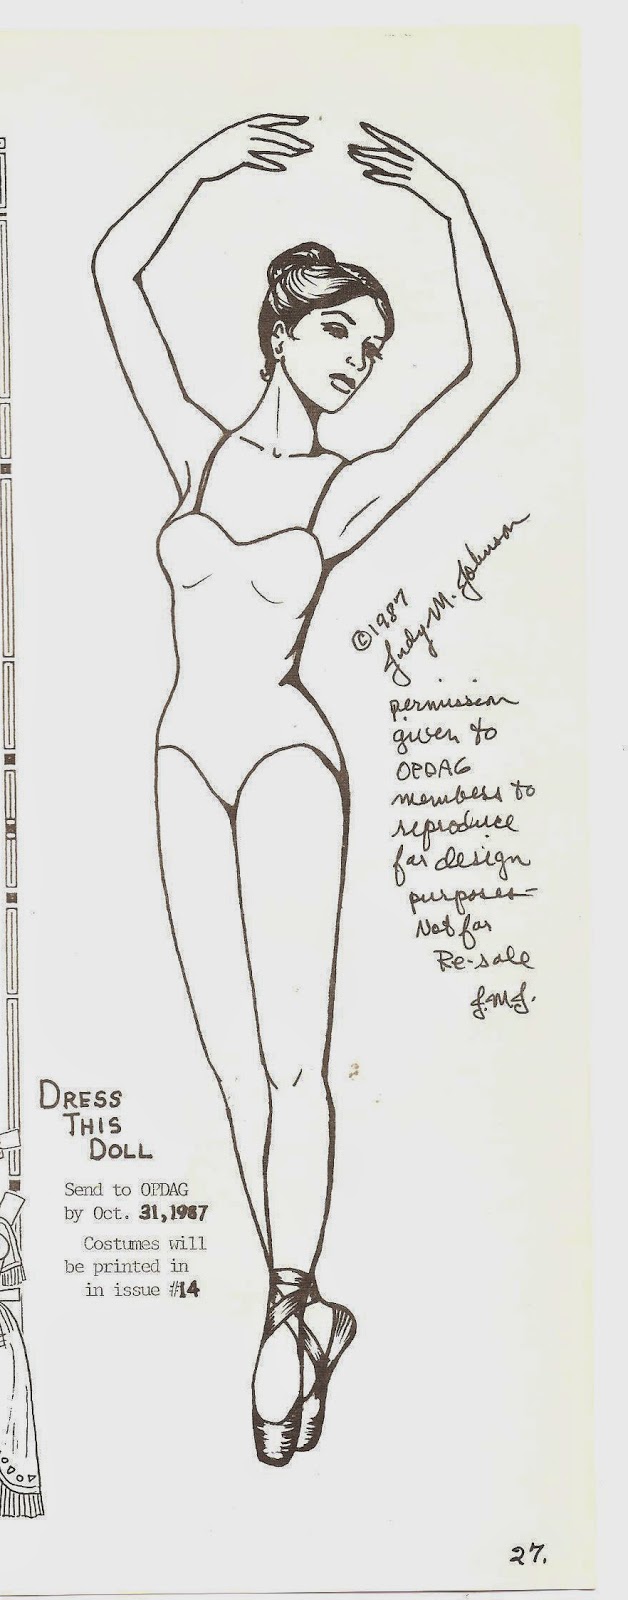 ©1987
Judy M. Johnson
permission
given to
OPDAG
members to
reproduce
for design
purposes—
Not for
Re-sale
J.M.J.
DRESS
THIS
DOLL
Send to OPDAG
by Oct. 31,1987
Costumes will
be printed in
in issue #14
27.